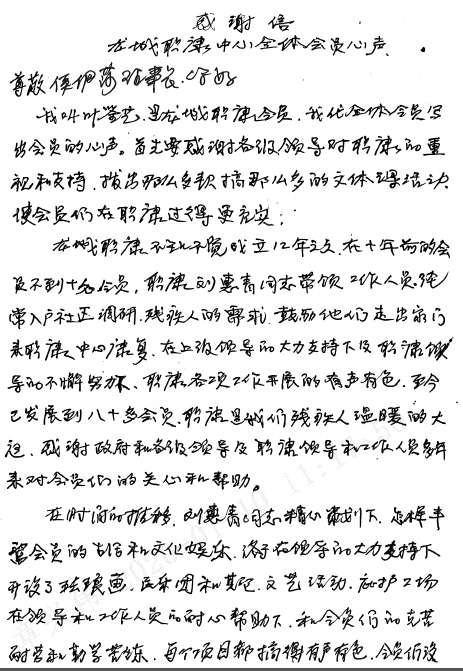 感谢信
龙城职康中心全体会员心声
尊敬 理事长：你好
我叫叶 ，是龙城职康会员，我代全体会员写
出会员的心声。首先要感谢各级领导对职康的重
视和支持，拨出那么多款搞那么多的文体 活动，
使会员们在职康过得更充实；
龙城职康不知不觉成立12年之久，在十年前的会
员不到十名会员，职康刘惠青同志带领工作人员经
常入户社区调研，残疾人的需求，鼓励他们走出家门
来职康中心康复，在上级领导的大力支持下及职康领
导的不懈努力，职康各项工作开展的有声有色，至今
已发展到八十多会员，职康是我们残疾人温暖的大
，感谢政府和各级领导及职康领导和工作人员多年
来对会员们的关心和帮助。
在时间的推移，刘惠青同志精心策划下，怎样丰
会员的生活和文化娱乐，终于在领导的大力支持下
开设了 画，民乐团和其它文艺活动，庇护工场
在领导和工作人员的耐心帮助下，和会员们的克苦
耐劳和勤学苦练，每个项目都搞得有声有色，会员们没